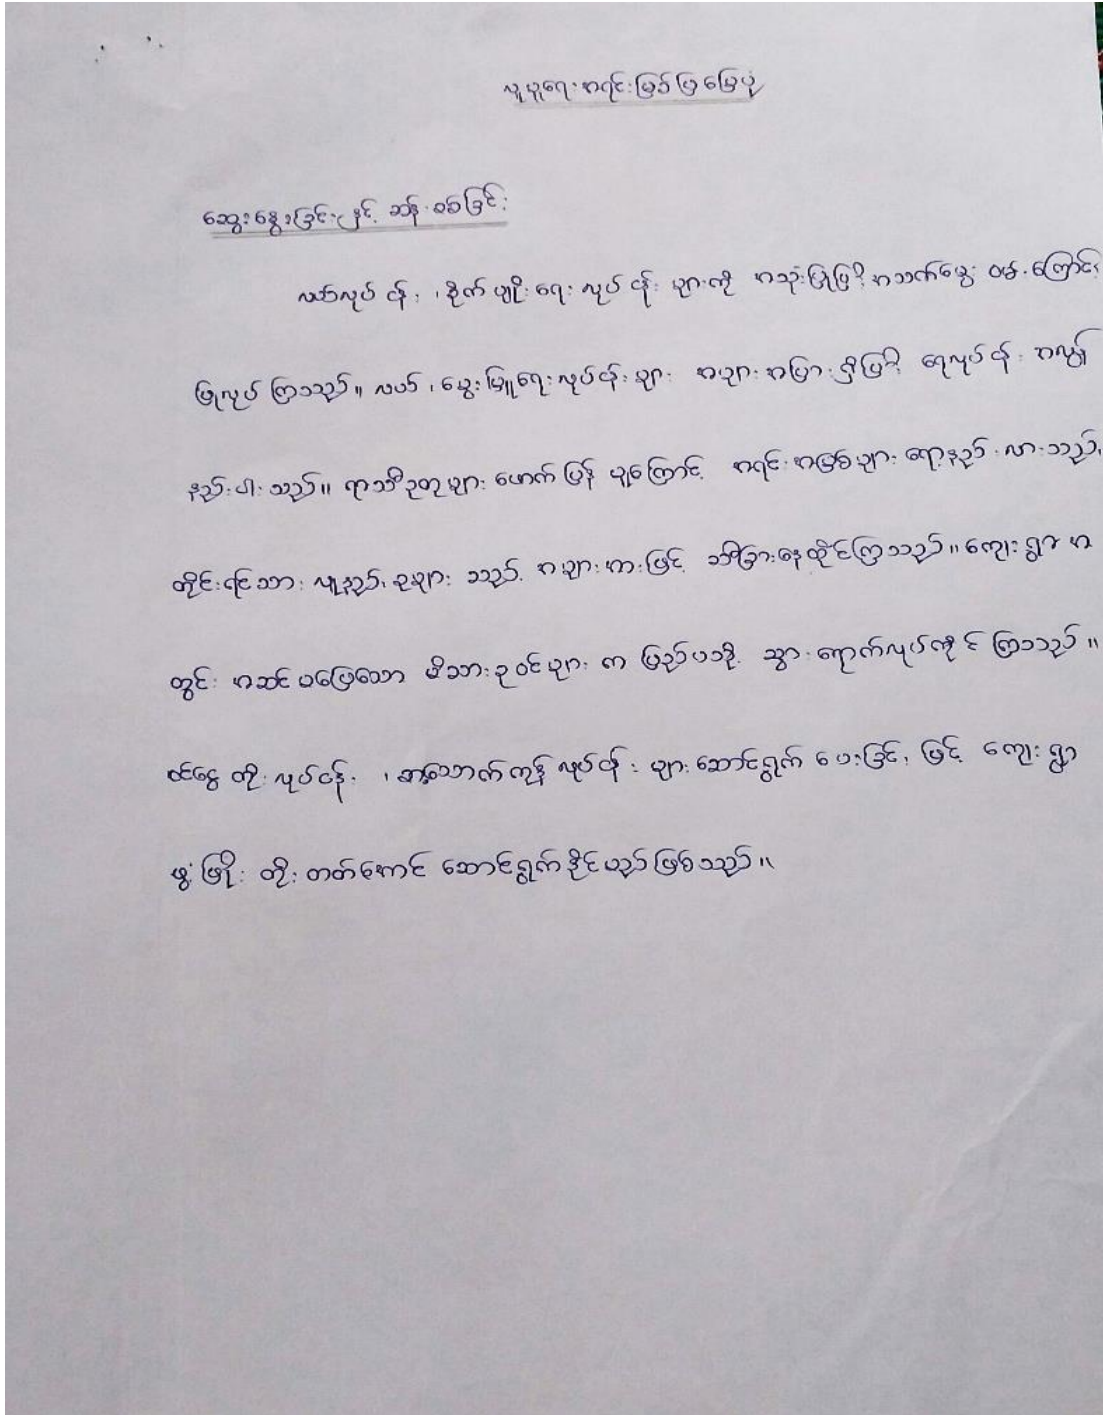 လူမှုရေးအရင်းမြစ်ပြမြေပုံ
ဆွေးနွေးခြင်းနှင့် ဆန်းစစ်ခြင်း
လယ်လုပ်ငန်း၊ စိုက်ပျိုးရေးလုပ်ငန်းများကို အသုံးပြုပြီး အသက်မွေးဝမ်းကြောင်း
ပြုလုပ်ကြသည်။ လယ်၊ မွေးမြူရေးလုပ်ငန်းများ အများအပြားရှိပြီး ရေလုပ်ငန်း အလွန်
နည်းပါးသည်။ ရာသီဥတုများ ဖောက်ပြန်မှုကြောင့် အရင်းအမြစ်များ လျော့နည်းလာသည်၊
တိုင်းရင်းသား လူနည်းစုများသည် အများအားဖြင့် သီးခြားနေထိုင်ကြသည်။ ကျေးရွာအ
တွင်း အဆင်မပြေသော မိသားစုဝင်များက ပြည်ပသို့ သွားရောက်လုပ်ကိုင်ကြသည်။
ဝင်ငွေတိုးလုပ်ငန်း၊ အသုံးကုန်လုပ်ငန်းများဆောင်ရွက်ပေးခြင်းဖြင့် ကျေးရွာ
ဖွံ့ဖြိုးတိုးတတ်အောင် ဆောင်ရွက်နိုင်မည်ဖြစ်သည်။